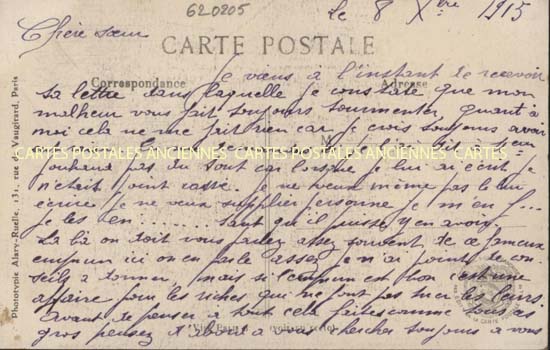 620205
le 8 Xbre 1915
Chère sœur
CARTE POSTALE
Correspondance
Adresse
je viens à l'instant de recevoir
ta lettre dans laquelle je constate que mon
malheur vous fait toujours tourmenter, quant à
moi cela ne me fait rien car je crois toujours avoir
CARTES POSTALES ANCIENNES CARTES POSTALES ANCIENNES CARTES
pas du tout car lorsque je lui ai écrit je
n'était point cassé. je ne veux même pas le lui
écrire je ne veux supplier personne je m'en f...
je les en ........ tant qu'il puisse y en avoir
La bà on doit vous parler assez souvent de ce fameux
emprunt ici on en parle assez je n'ai point de con
seils a donner mais si l'emprunt est bon c'est une
affaire pour les riches qui ne font pas tuer les leurs.
avant de penser a tout cela faites comme tous ces
gros pensez d'abord a vous chercher toujours a vous
Phototypie Alary-Ruelle, 131, rue de Vaugirard, Paris